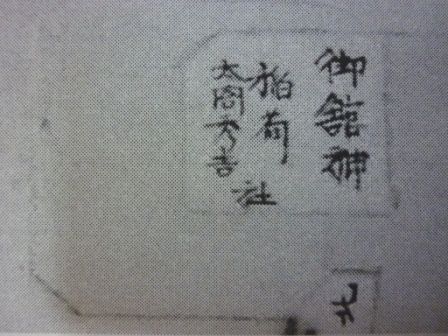 御舘神
稲荷
太閤秀吉
社
北